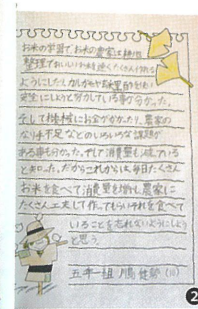 お米の学習で、お米の農家は耕地
整理でおいしいお米を速くたくさん作れる
ようにしたり、カルガモや
安全にしようと努力している事が分かった。
そして機械にお金がかかったり、農家の
なり手不足などのいろいろな課題が
ある事も分かった。そして消費量も減っている
と知った。だからこれからは、毎日たくさん
お米を食べて消費量を増やし、農家に
たくさん工夫して作ってもらいそれを食べて
いることを忘れないようにしよう
と思う。
五年一組
2